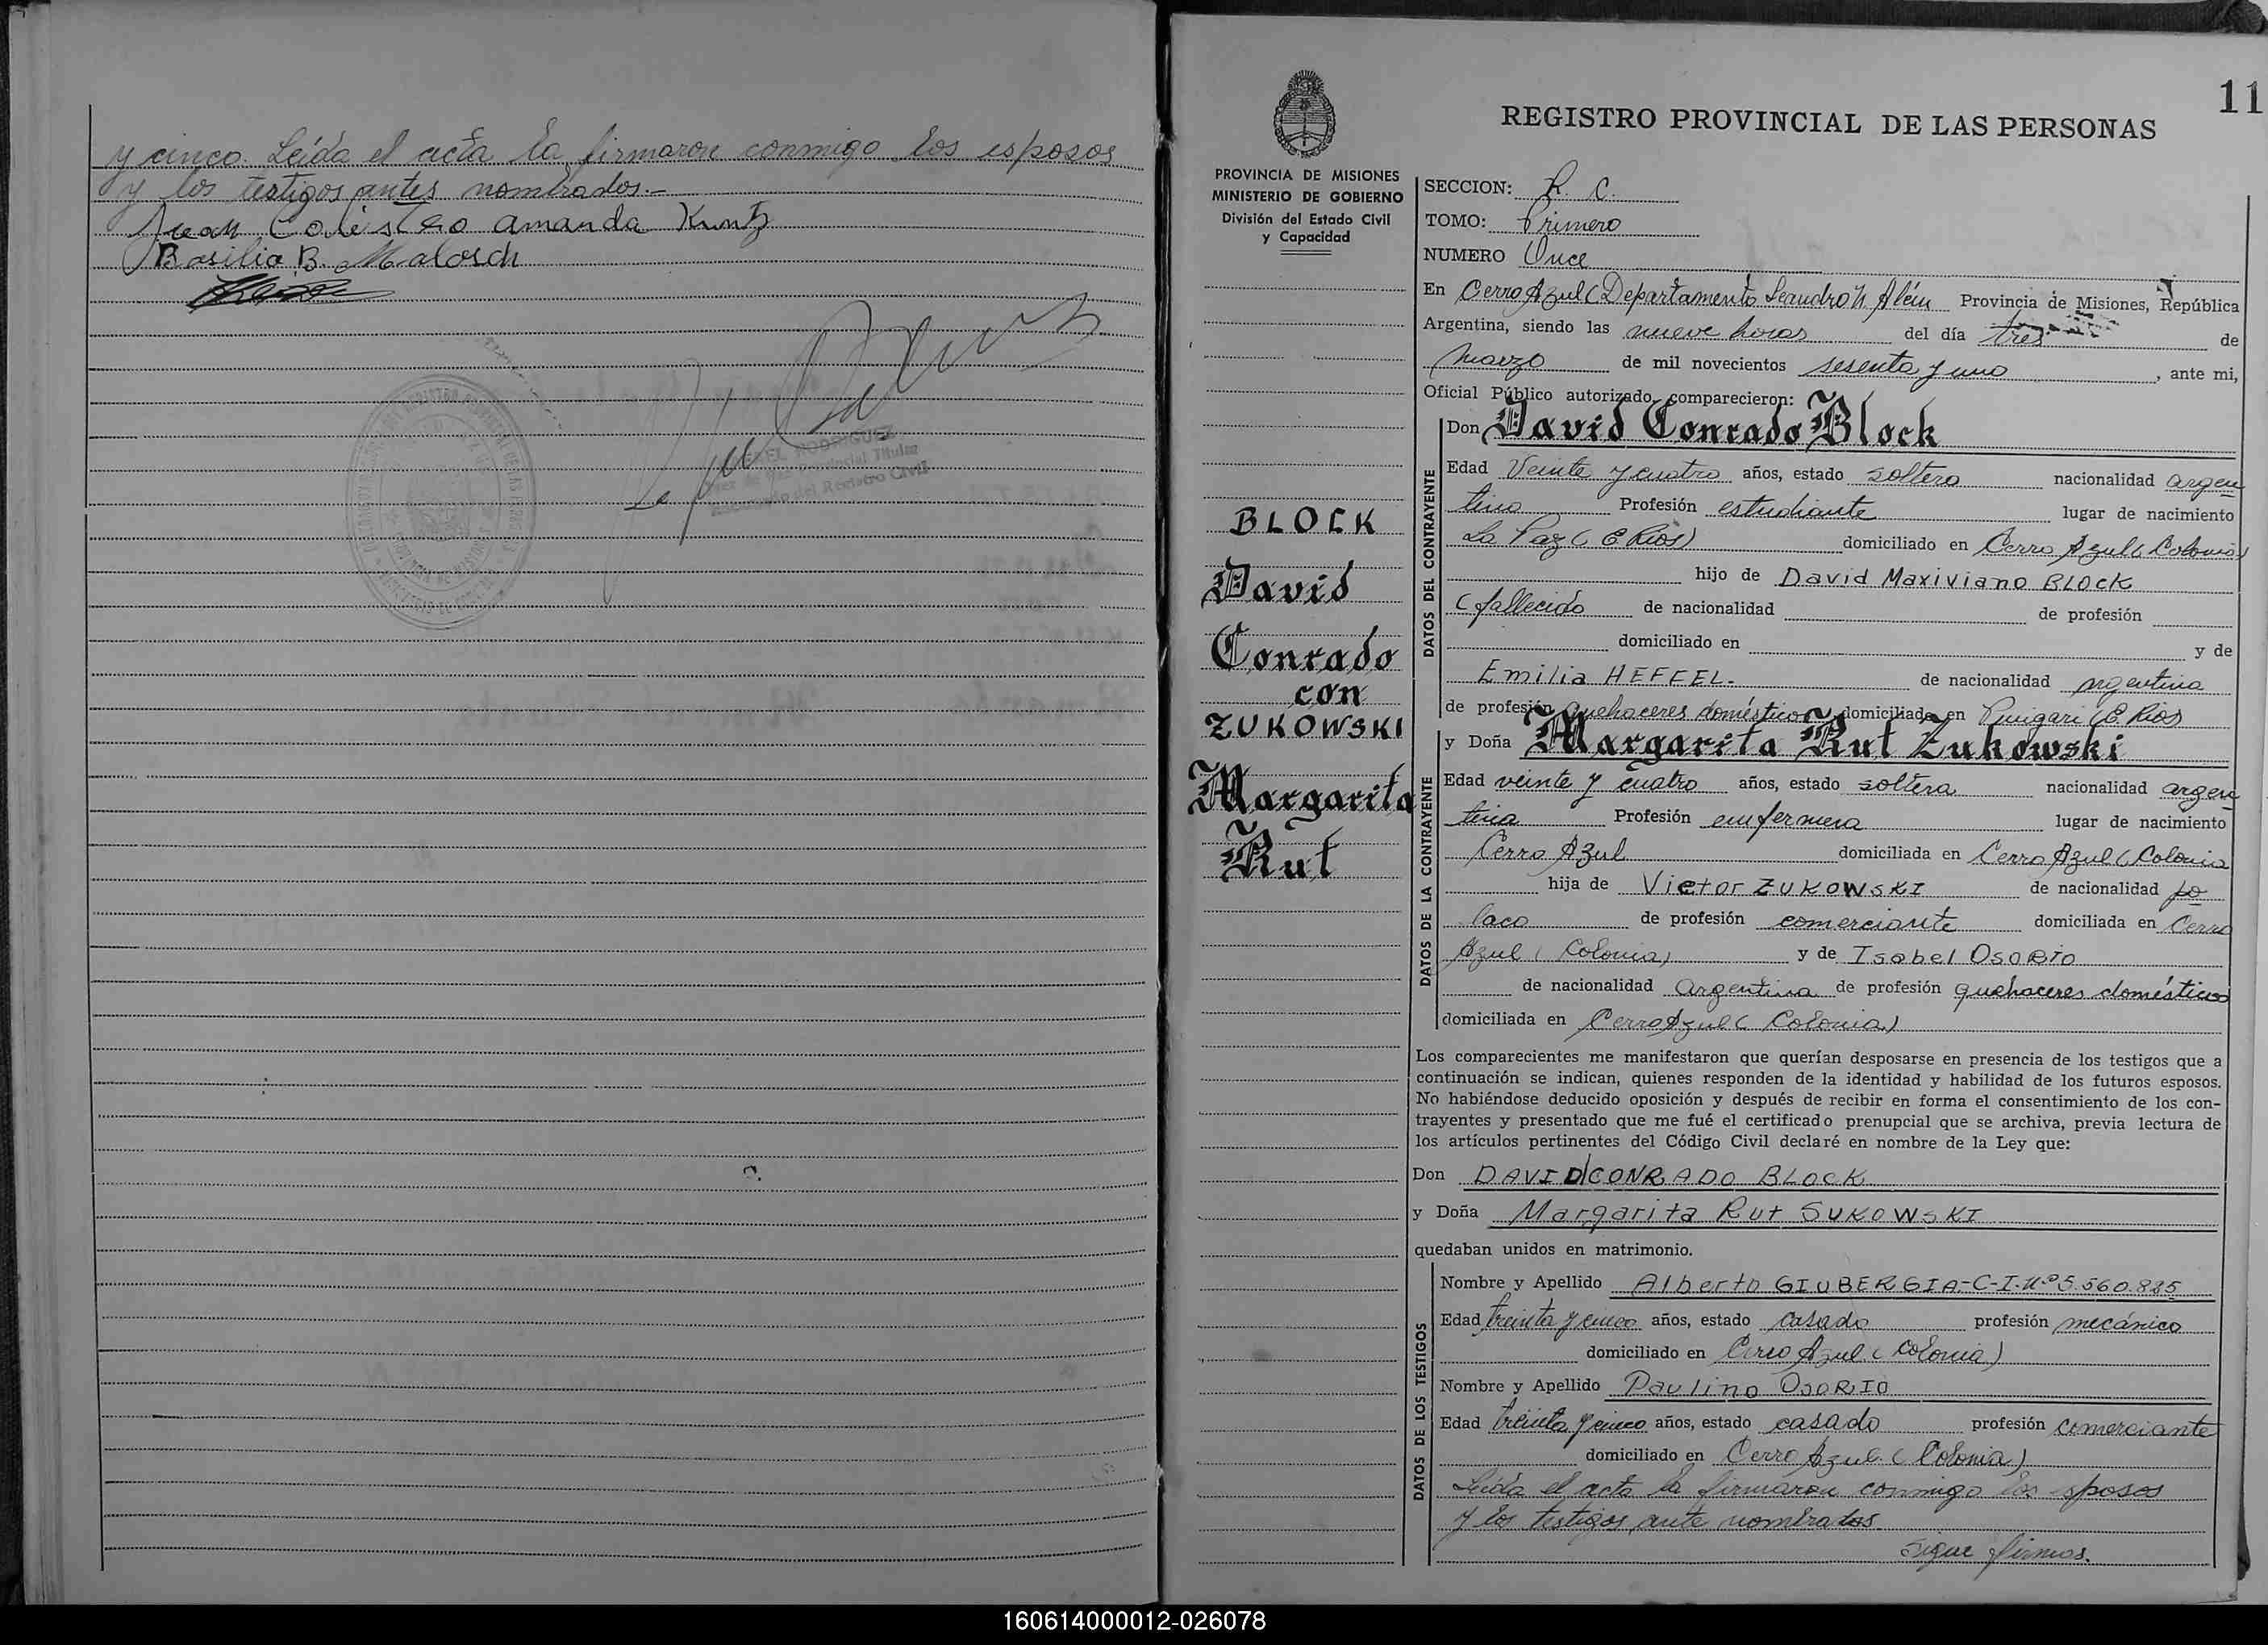 y cinco. Leída el acta la firmaron conmigo los esposos
y los testigos antes nombrados.-
Juan Amanda Kuntz
Basilio B. Malosch
RODRIGUEZ
Juez de Paz Provincial Titular
Encargado del Registro Civil
11
REGISTRO PROVINCIAL DE LAS PERSONAS
PROVINCIA DE MISIONES
MINISTERIO DE GOBIERNO
División del Estado Civil
y Capacidad
BLOCK
David
Conrado
con
ZUKOWSKI
Margarita
Rut
SECCION: R. C.
TOMO: Primero
NUMERO Once
En Cerro Azul (Departamento Leandro N. Além Provincia de Misiones, República
Argentina, siendo las nueve horas del día tres de
marzo de mil novecientos sesenta y uno, ante mi,
Oficial Público autorizado, comparecieron:
DATOS DEL CONTRAYENTE
Don David Conrado Block
Edad Veinte y cuatro años, estado soltero nacionalidad argen
tino Profesión estudiante lugar de nacimiento
La Paz (E. Rios) domiciliado en Cerro Azul (Colonia)
hijo de David Maxiviano BLOCK
(fallecido de nacionalidad de profesión
domiciliado en y de
Emilia HEFFEL.- de nacionalidad argentina
de profesión quehaceres domésticos domiciliada en Puigari (E. Rios)
DATOS DE LA CONTRAYENTE
y Doña Margarita Rut Zukowski
Edad veinte y cuatro años, estado soltera nacionalidad argen
tina Profesión enfermera lugar de nacimiento
Cerro Azul domiciliada en Cerro Azul (Colonia
hija de Victor ZUKOWSKI de nacionalidad po
laco de profesión comerciante domiciliada en Cerro
Azul (Colonia) y de Isabel OSORIO
de nacionalidad Argentina de profesión quehaceres domésticos
domiciliada en Cerro Azul (Colonia)
Los comparecientes me manifestaron que querían desposarse en presencia de los testigos que a
continuación se indican, quienes responden de la identidad y habilidad de los futuros esposos.
No habiéndose deducido oposición y después de recibir en forma el consentimiento de los con-
trayentes y presentado que me fué el certificado prenupcial que se archiva, previa lectura de
los artículos pertinentes del Código Civil declaré en nombre de la Ley que:
Don DAVID CONRADO BLOCK
y Doña Margarita Rut SUKOWSKI
quedaban unidos en matrimonio.
DATOS DE LOS TESTIGOS
Nombre y Apellido Alberto GIUBERGIA-C-I-Nº 5.560.835
Edad treinta y cinco años, estado casado profesión mecánico
domiciliado en Cerro Azul (Colonia)
Nombre y Apellido Paulino OSORIO
Edad treinta y cinco años, estado casado profesión comerciante
domiciliado en Cerro Azul (Colonia)
Leída el acta la firmaron conmigo los esposos
y los testigos ante nombrados
Sigue firmas.
160614000012-026078